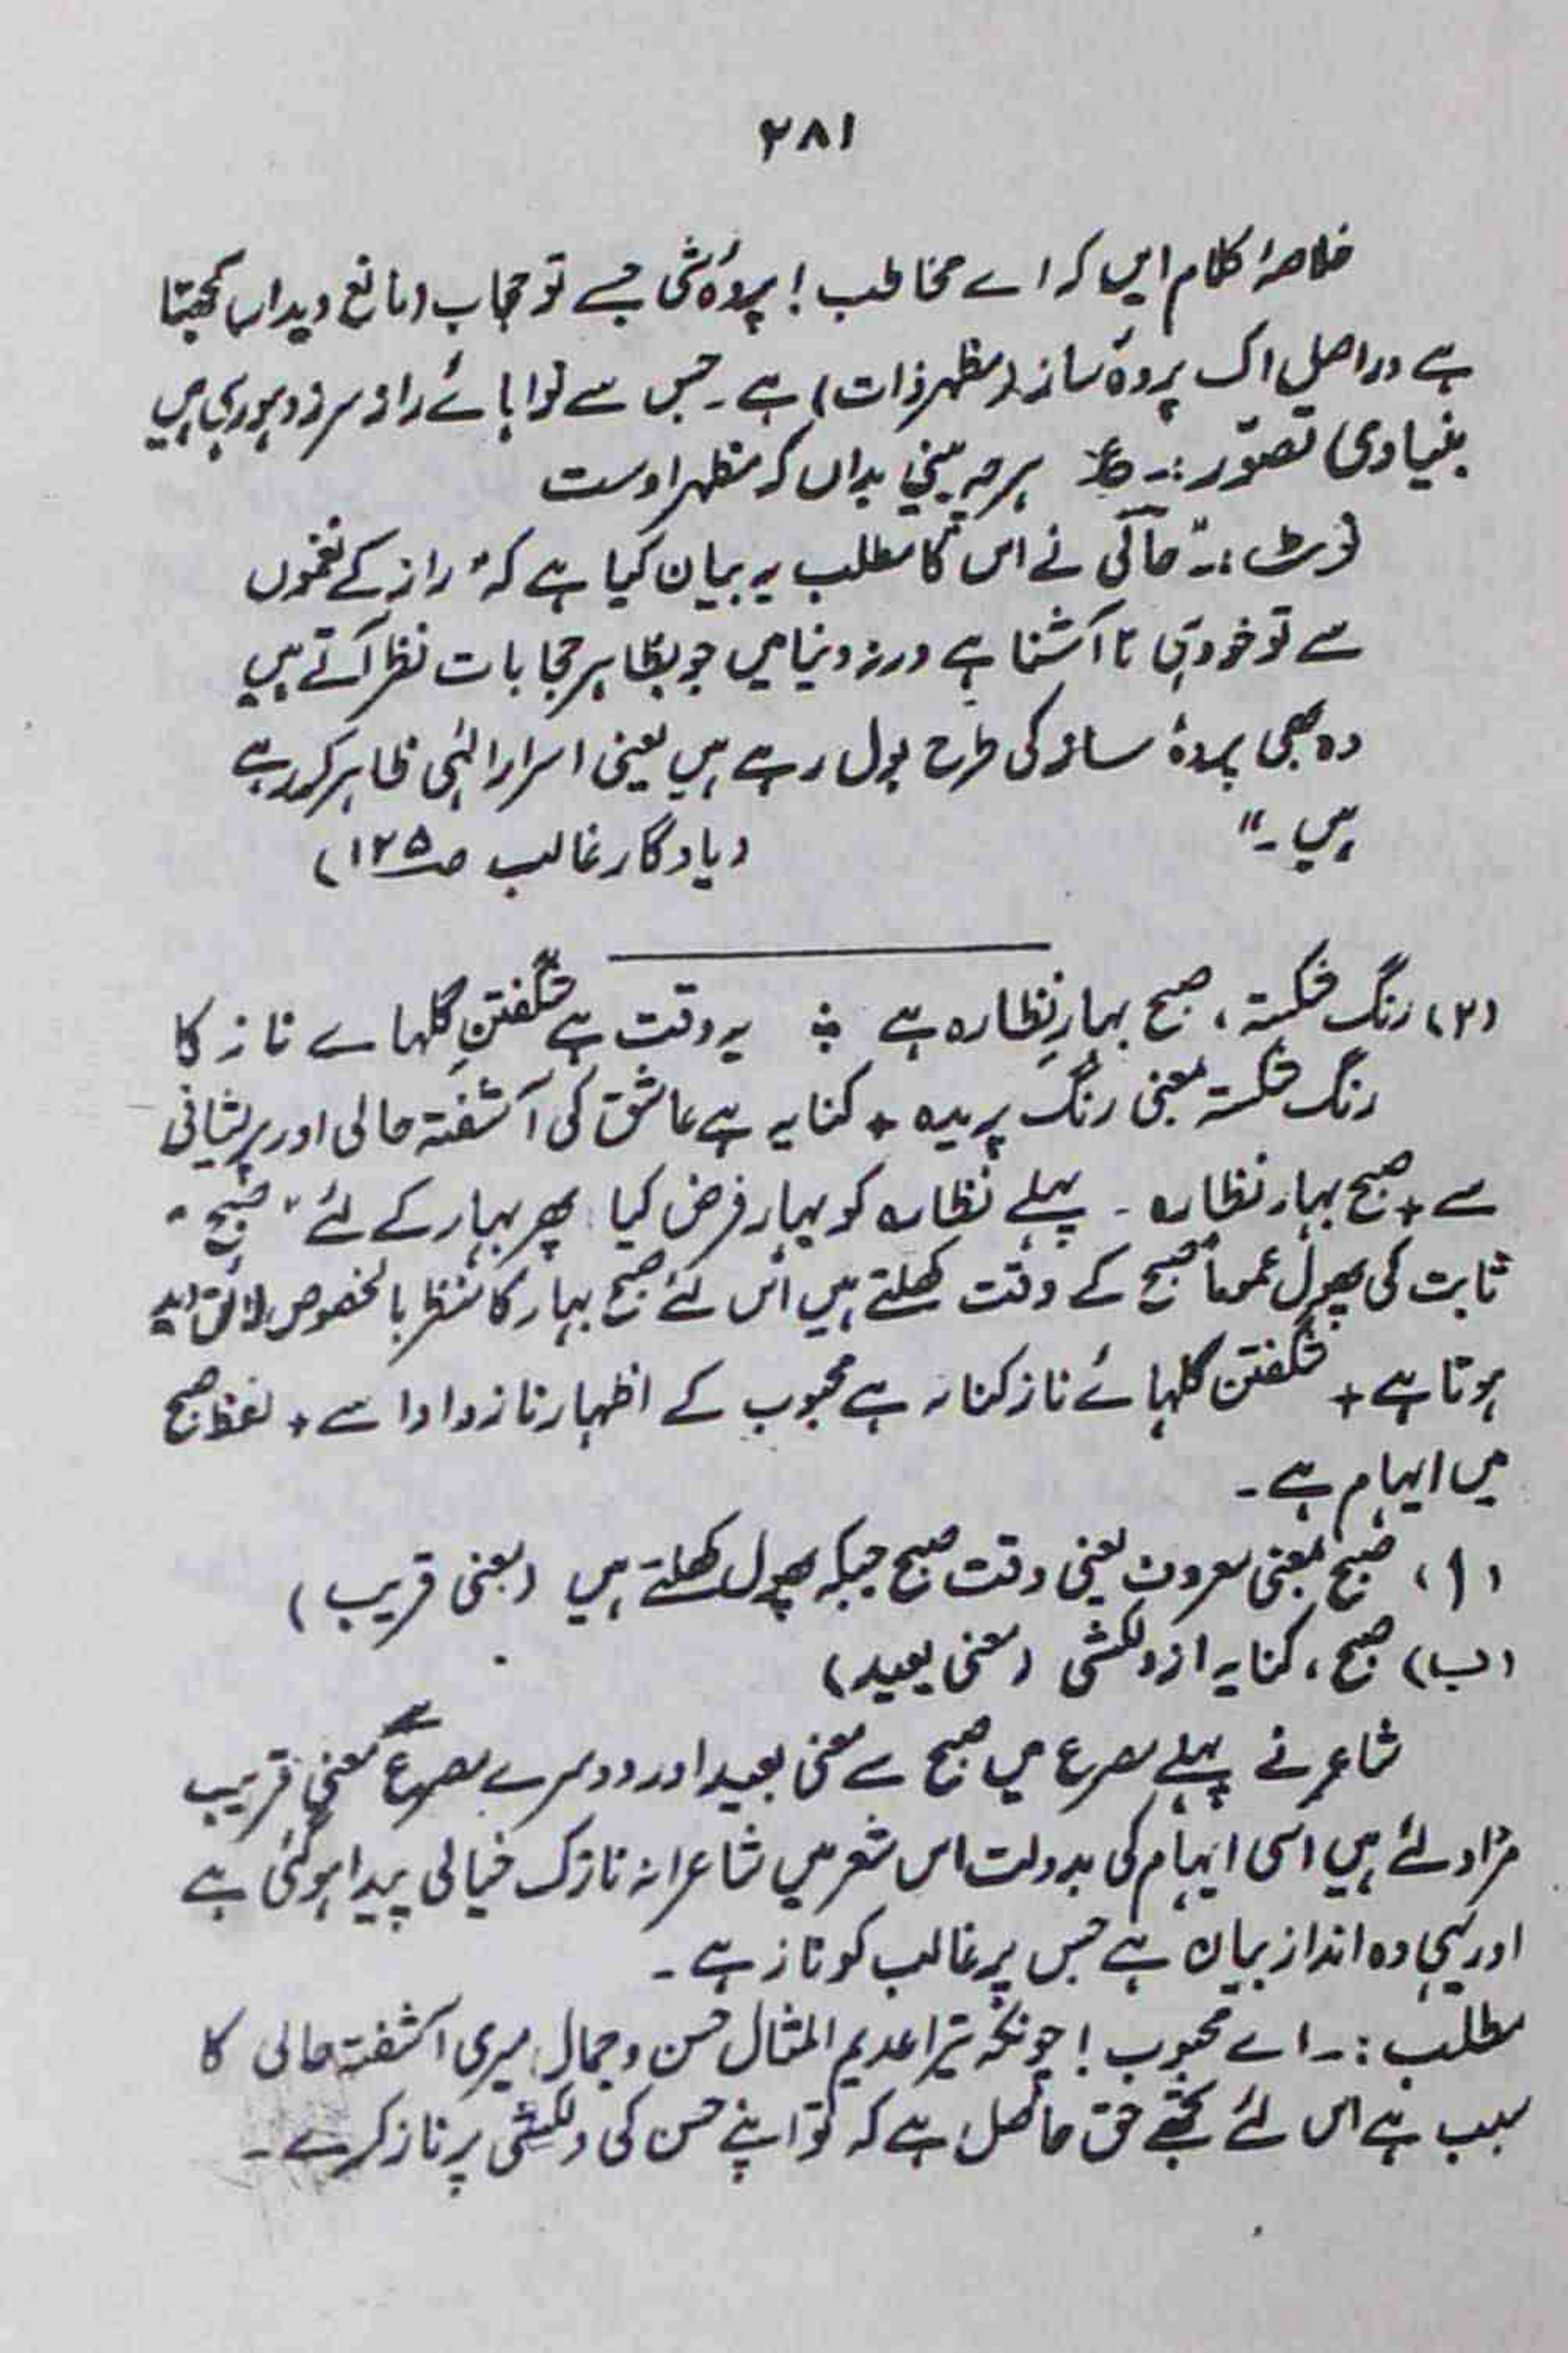 ۲۸۱
خلاصۂ کلام ایں کہ اے مخاطب! پردۂ شی جسے تو حجاب (مانع دیدار) سمجھتا
ہے دراصل اک پردۂ ساز (مظہر ذات) ہے۔ جس سے نوا ہائے راز سرزد ہو رہی ہیں
بنیادی تصوّر:۔ ع ہرچہ بینی بداں کہ مظہر اوست
نوٹ:۔ حالؔی نے اس کا مطلب یہ بیان کیا ہے کہ "راز کے نغموں
سے تو خود ہی نا آشنا ہے ورنہ دنیا میں جو بظاہر حجابات نظر آتے ہیں
وہ بھی پردۂ ساز کی طرح بول رہے ہیں یعنی اسرار الٰہی ظاہر کر رہے
ہیں۔" (یادگار غالب صـ۱۲۵)
(۲) رنگ شکستہ، صبح بہارِ نظارہ ہے ؞ یہ وقت ہے شگفتنِ گلہاے ناز کا
رنگ شکستہ بمعنی رنگ پریدہ + کنایہ ہے عاشق کی آشفتہ حالی اور پریشانی
سے + صبح بہار نظارہ۔ پہلے نظارہ کو بہار فرض کیا پھر بہار کے لئے "صبح"
ثابت کی پھول عموماً صبح کے وقت کھلتے ہیں اس لئے صبح بہار کا منظر بالخصوص لائق دید
ہوتا ہے + شگفتن گلہائے ناز کنایہ ہے محبوب کے اظہار ناز و ادا سے + لفظ صبح
میں ایہام ہے۔
(ا) صبح بمعنی معروف یعنی وقت صبح جبکہ پھول کھلتے ہیں (معنی قریب)
(ب) صبح، کنایہ از دلکشی (معنی بعید)
شاعر نے پہلے مصرع میں صبح سے معنی بعید اور دوسرے مصرع سے معنی قریب
مراد لئے ہیں اسی ایہام کی بدولت اس شعر میں شاعرانہ نازک خیالی پیدا ہو گئی ہے
اور یہی وہ انداز بیان ہے جس پر غالب کو ناز ہے۔
مطلب:۔ اے محبوب! چونکہ تیرا عدیم المثال حسن و جمال میری آشفتہ حالی کا
سبب ہے اس لئے تجھے حق حاصل ہے کہ تو اپنے حسن کی دلکشی پر ناز کرے۔